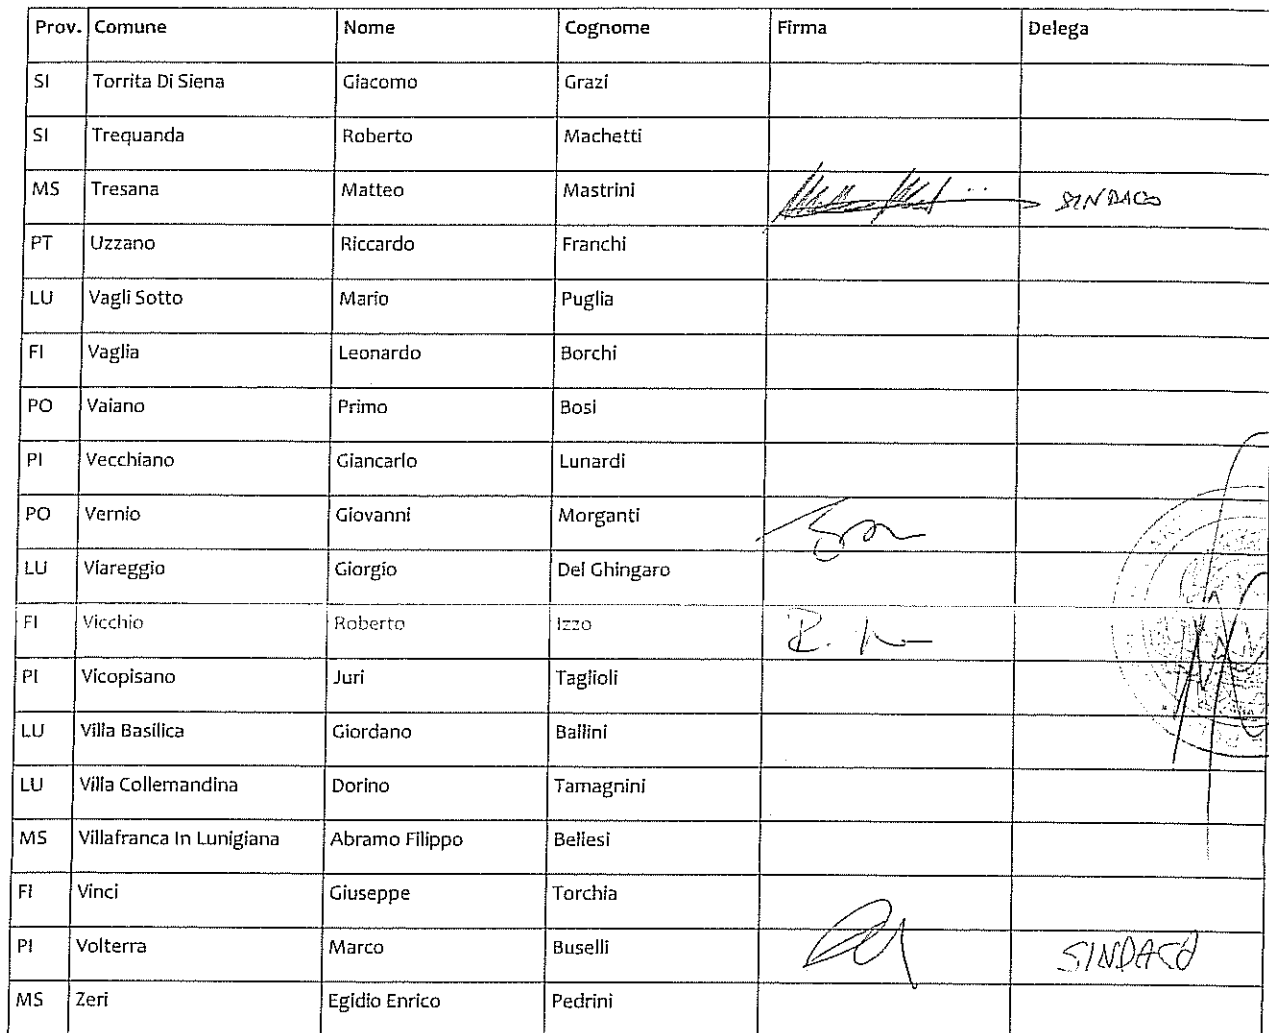 Prov. Comune Nome Cognome Firma Delega
SI Torrita Di Siena Giacomo Grazi
SI Trequanda Roberto Machetti
MS Tresana Matteo Mastrini SINDACO
PT Uzzano Riccardo Franchi
LU Vagli Sotto Mario Puglia
FI Vaglia Leonardo Borchi
PO Vaiano Primo Bosi
PI Vecchiano Giancarlo Lunardi
PO Vernio Giovanni Morganti
LU Viareggio Giorgio Del Ghingaro
FI Vicchio Roberto Izzo
PI Vicopisano Juri Taglioli
LU Villa Basilica Giordano Ballini
LU Villa Collemandina Dorino Tamagnini
MS Villafranca In Lunigiana Abramo Filippo Bellesi
FI Vinci Giuseppe Torchia
PI Volterra Marco Buselli SINDACO
MS Zeri Egidio Enrico Pedrini